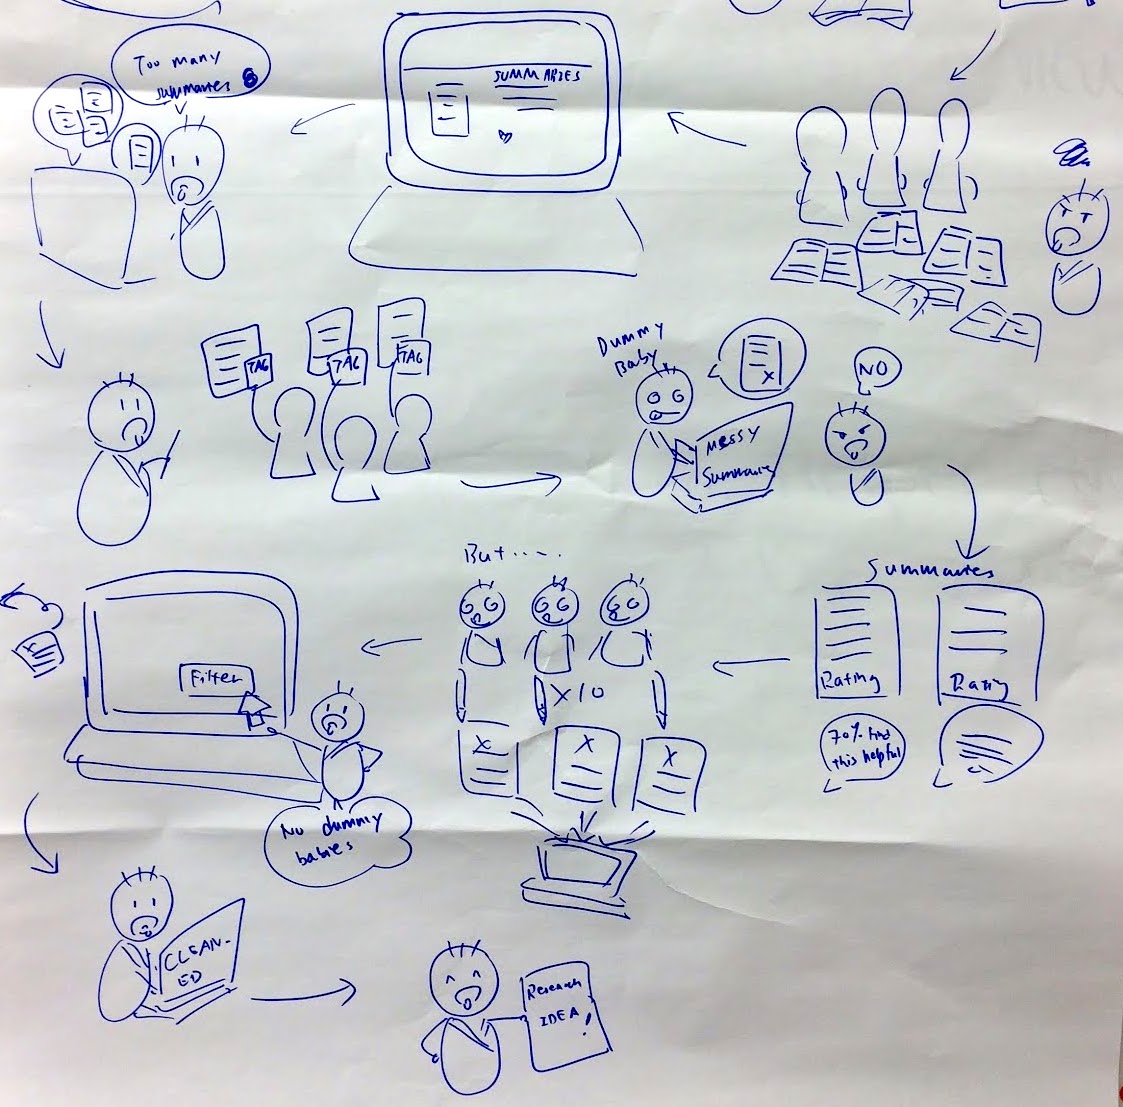 Too many
summaries
SUMMARIES
TAG
TAG
TAG
Dummy
Baby
MESSY
Summaries
NO
Summaries
Rating
Rating
70% find
this helpful
But.....
X10
Filter
No dummy
babies
CLEAN-
ED
Research
IDEA!